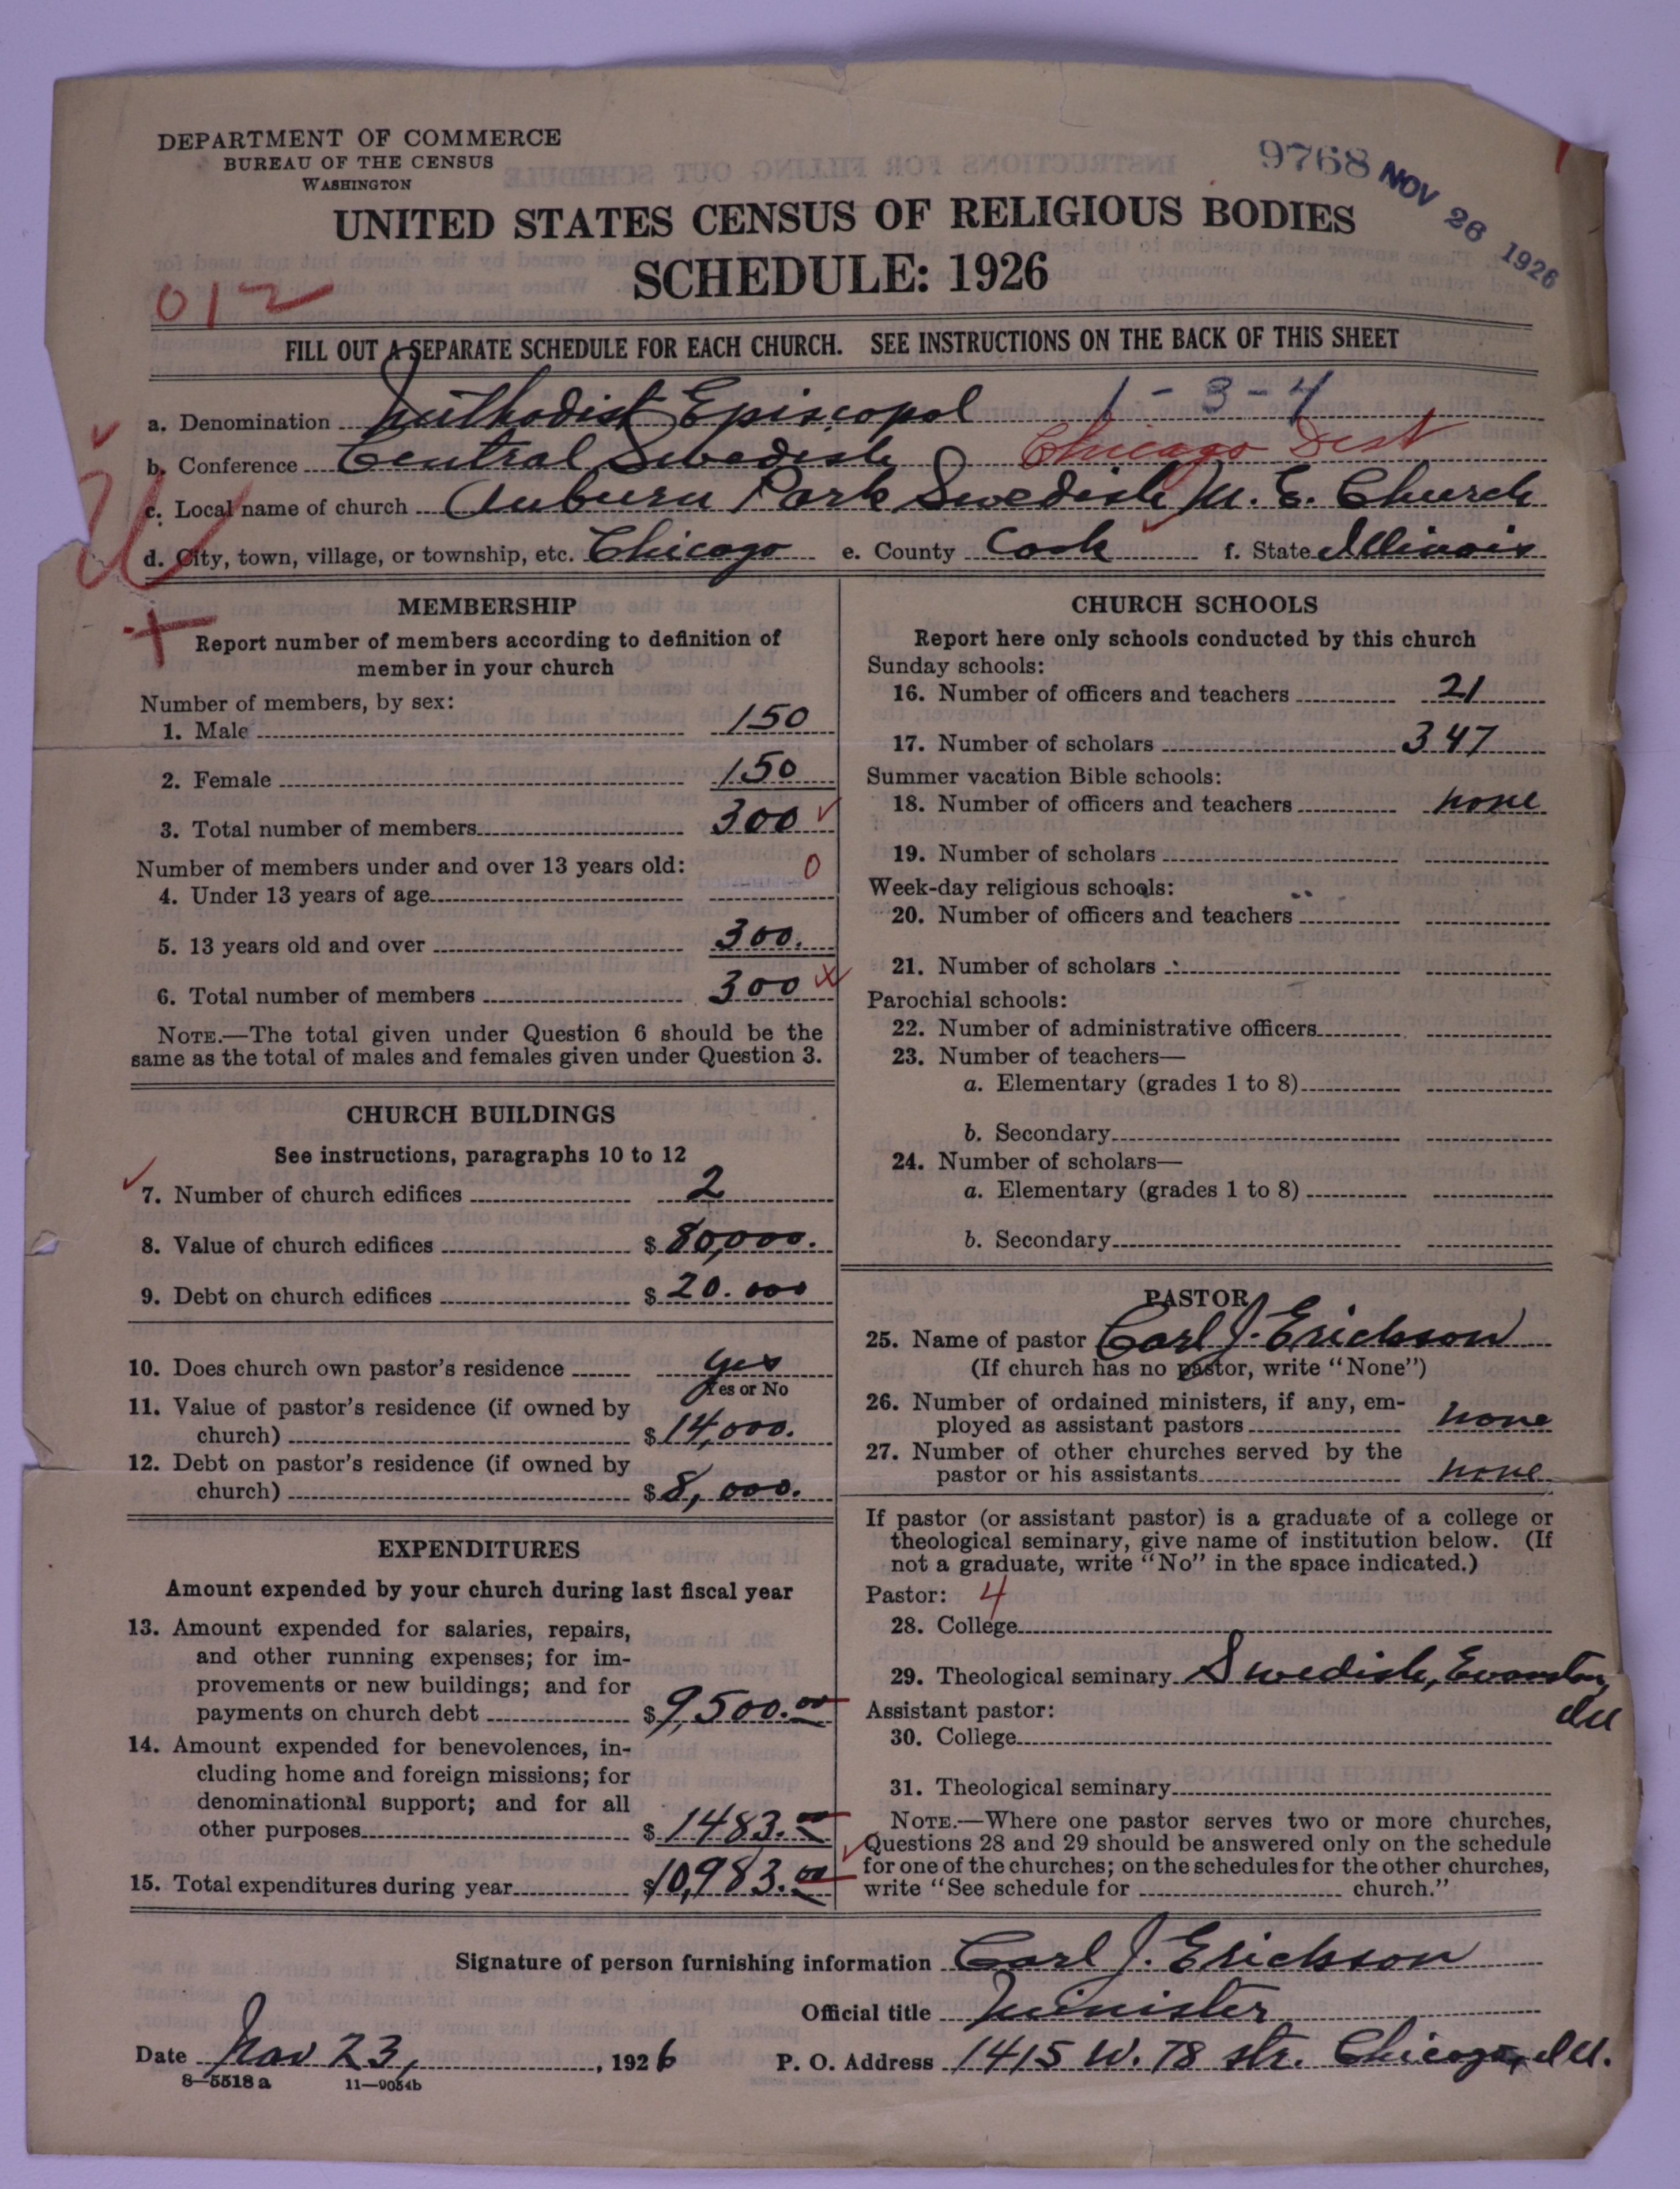 DEPARTMENT OF COMMERCE
BUREAU OF THE CENSUS
WASHINGTON
9768 NOV 26 1926
UNITED STATES CENSUS OF RELIGIOUS BODIES
SCHEDULE: 1926
012
FILL OUT A SEPARATE SCHEDULE FOR EACH CHURCH. SEE INSTRUCTIONS ON THE BACK OF THIS SHEET
a. Denomination Methodist Episcopal 1-3-4
b. Conference Central Swedish Chicago Dist
c. Local name of church Auburn Park Swedish M. E. Church
d. City, town, village, or township, etc. Chicago e. County Cook f. State Illinois
MEMBERSHIP
Report number of members according to definition of
member in your church
Number of members, by sex:
1. Male 150
2. Female 150
3. Total number of members 300
Number of members under and over 13 years old: 0
4. Under 13 years of age
5. 13 years old and over 300.
6. Total number of members 300 x
NOTE.—The total given under Question 6 should be the
same as the total of males and females given under Question 3.
CHURCH BUILDINGS
See instructions, paragraphs 10 to 12
7. Number of church edifices 2
8. Value of church edifices $ 80,000.
9. Debt on church edifices $ 20.000
10. Does church own pastor's residence yes
Yes or No
11. Value of pastor's residence (if owned by
church) $ 14,000.
12. Debt on pastor's residence (if owned by
church) $ 8,000.
EXPENDITURES
Amount expended by your church during last fiscal year
13. Amount expended for salaries, repairs,
and other running expenses; for im-
provements or new buildings; and for
payments on church debt $ 9,500.00
14. Amount expended for benevolences, in-
cluding home and foreign missions; for
denominational support; and for all
other purposes $ 1483.00
15. Total expenditures during year $ 10,983.00
CHURCH SCHOOLS
Report here only schools conducted by this church
Sunday schools:
16. Number of officers and teachers 21
17. Number of scholars 347
Summer vacation Bible schools:
18. Number of officers and teachers none
19. Number of scholars
Week-day religious schools:
20. Number of officers and teachers
21. Number of scholars
Parochial schools:
22. Number of administrative officers
23. Number of teachers—
a. Elementary (grades 1 to 8)
b. Secondary
24. Number of scholars—
a. Elementary (grades 1 to 8)
b. Secondary
PASTOR
25. Name of pastor Carl J. Erickson
(If church has no pastor, write "None")
26. Number of ordained ministers, if any, em-
ployed as assistant pastors none
27. Number of other churches served by the
pastor or his assistants none
If pastor (or assistant pastor) is a graduate of a college or
theological seminary, give name of institution below. (If
not a graduate, write "No" in the space indicated.)
Pastor: 4
28. College
29. Theological seminary Swedish, Evanston
Ill
Assistant pastor:
30. College
31. Theological seminary
NOTE.—Where one pastor serves two or more churches,
Questions 28 and 29 should be answered only on the schedule
for one of the churches; on the schedules for the other churches,
write "See schedule for church."
Signature of person furnishing information Carl J. Erickson
Official title Minister
Date Nov 23, 1926 P. O. Address 1415 W. 78 str. Chicago, Ill.
8—5518 a 11—9054b